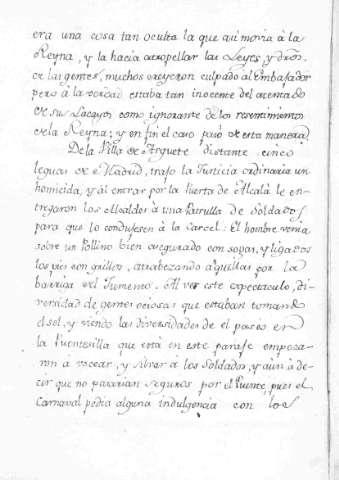 era una cosa tan oculta la que qui movia à la
Reyna, y la hacia atropellar las Leyes, y dròn
de las gentes, muchos creyeron culpado al Embajador
pero à la verdad estaba tan inocente del atentado
de sus Lacayos como ignorante de los resentimientos
de la Reyna; y en fin el caso pasó de esta manera.
De la Villa de Arguete distante cinco
leguas de Madrid, trajo la Justicia ordinaria un
homicida, y al entrar por la Puerta de Alcalà le en-
tregaron los Alcaldes à una Patrulla de Soldados
para que lo condujesen à la Carcel: El hombre venia
sobre un Pollino bien asegurado con sogas, y ligados
los pies con grillos, atrabezando aquellas por la
barriga del Jumento. Al ver este espectaculo, di-
versidad de gentes ociosas que estaban tomando
el sol, y viendo las diversidades de el paseo en
la fuentesilla que està en este parage empeza-
ron à vocear, y silvar à los Soldados, y aun à de-
cir que no pasarian seguros por el Puente, pues el
Carnaval pedia alguna indulgencia con los